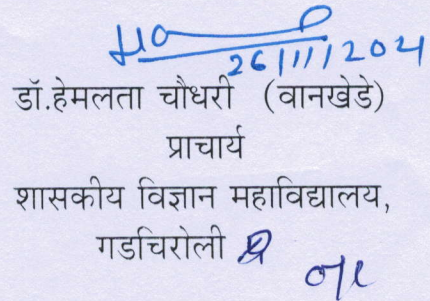 26/11/2024
डॉ.हेमलता चौधरी (वानखेडे)
प्राचार्य
शासकीय विज्ञान महाविद्यालय,
गडचिरोली